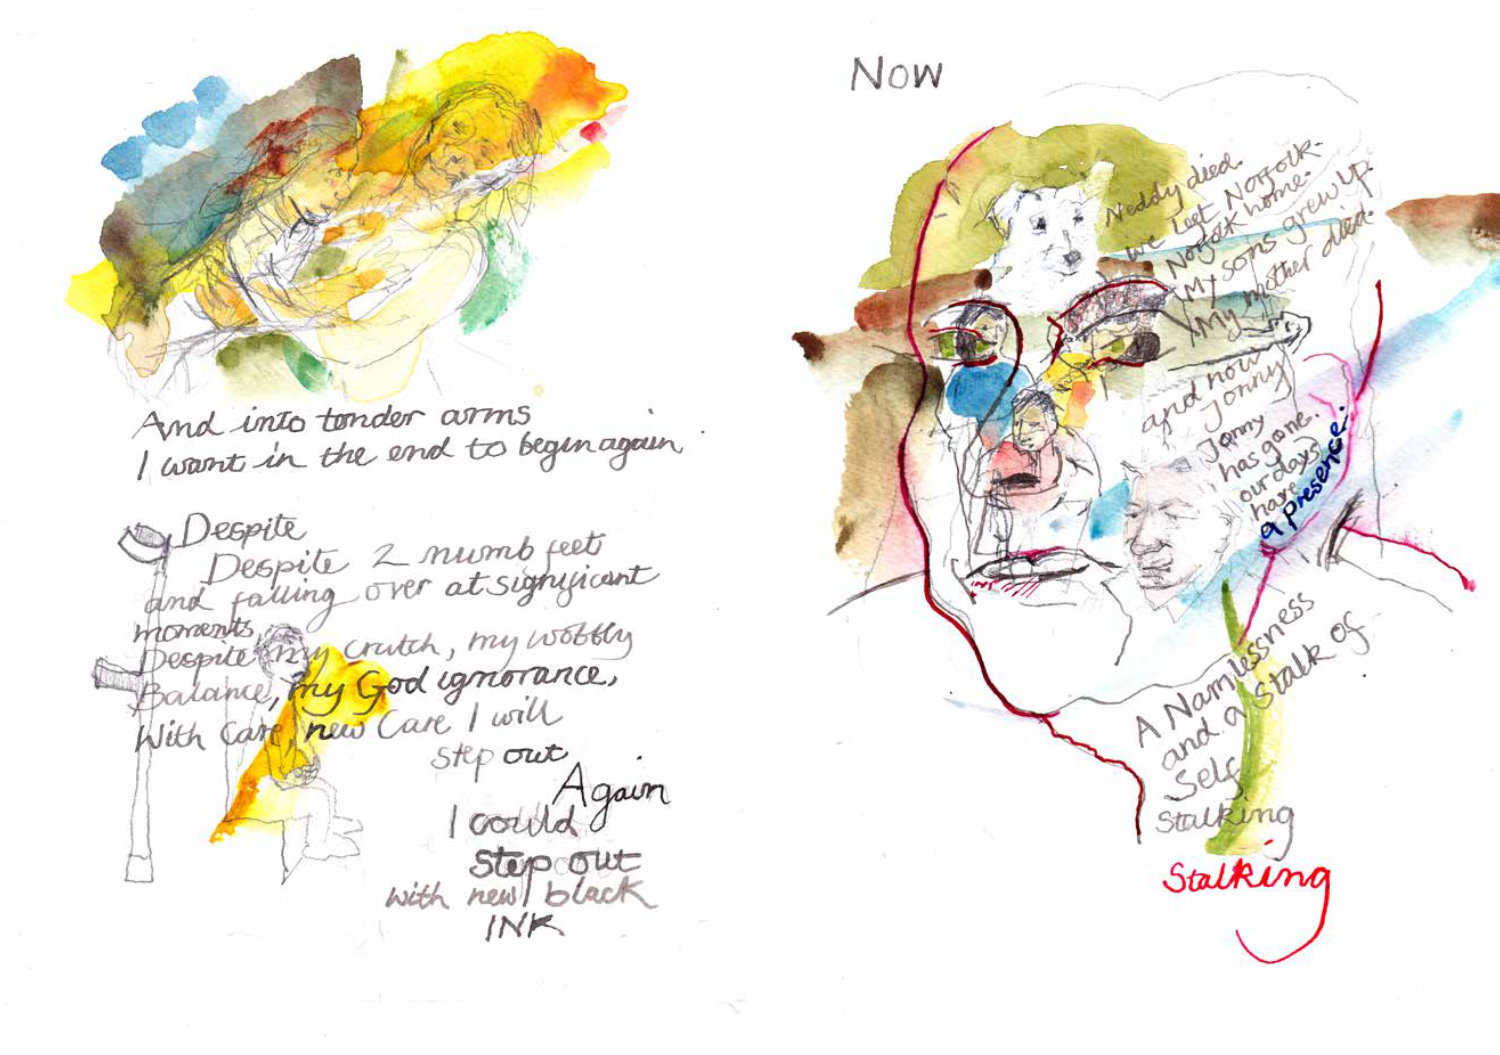 And into tender arms
I want in the end to begin again.
Despite
Despite 2 numb feet
and falling over at significant
moments
Despite my crutch, my wobbly
Balance, my God ignorance,
With Care, new Care I will
step out
Again
I could
Step out
with new black
INK
Now
Neddy died.
We left Norfolk.
Norfolk home.
My sons grew up.
My mother died.
and now
Jonny
Jonny
has gone.
our days
have
a presence.
A Namlessness
and a Stalk of
Self
Stalking
Stalking